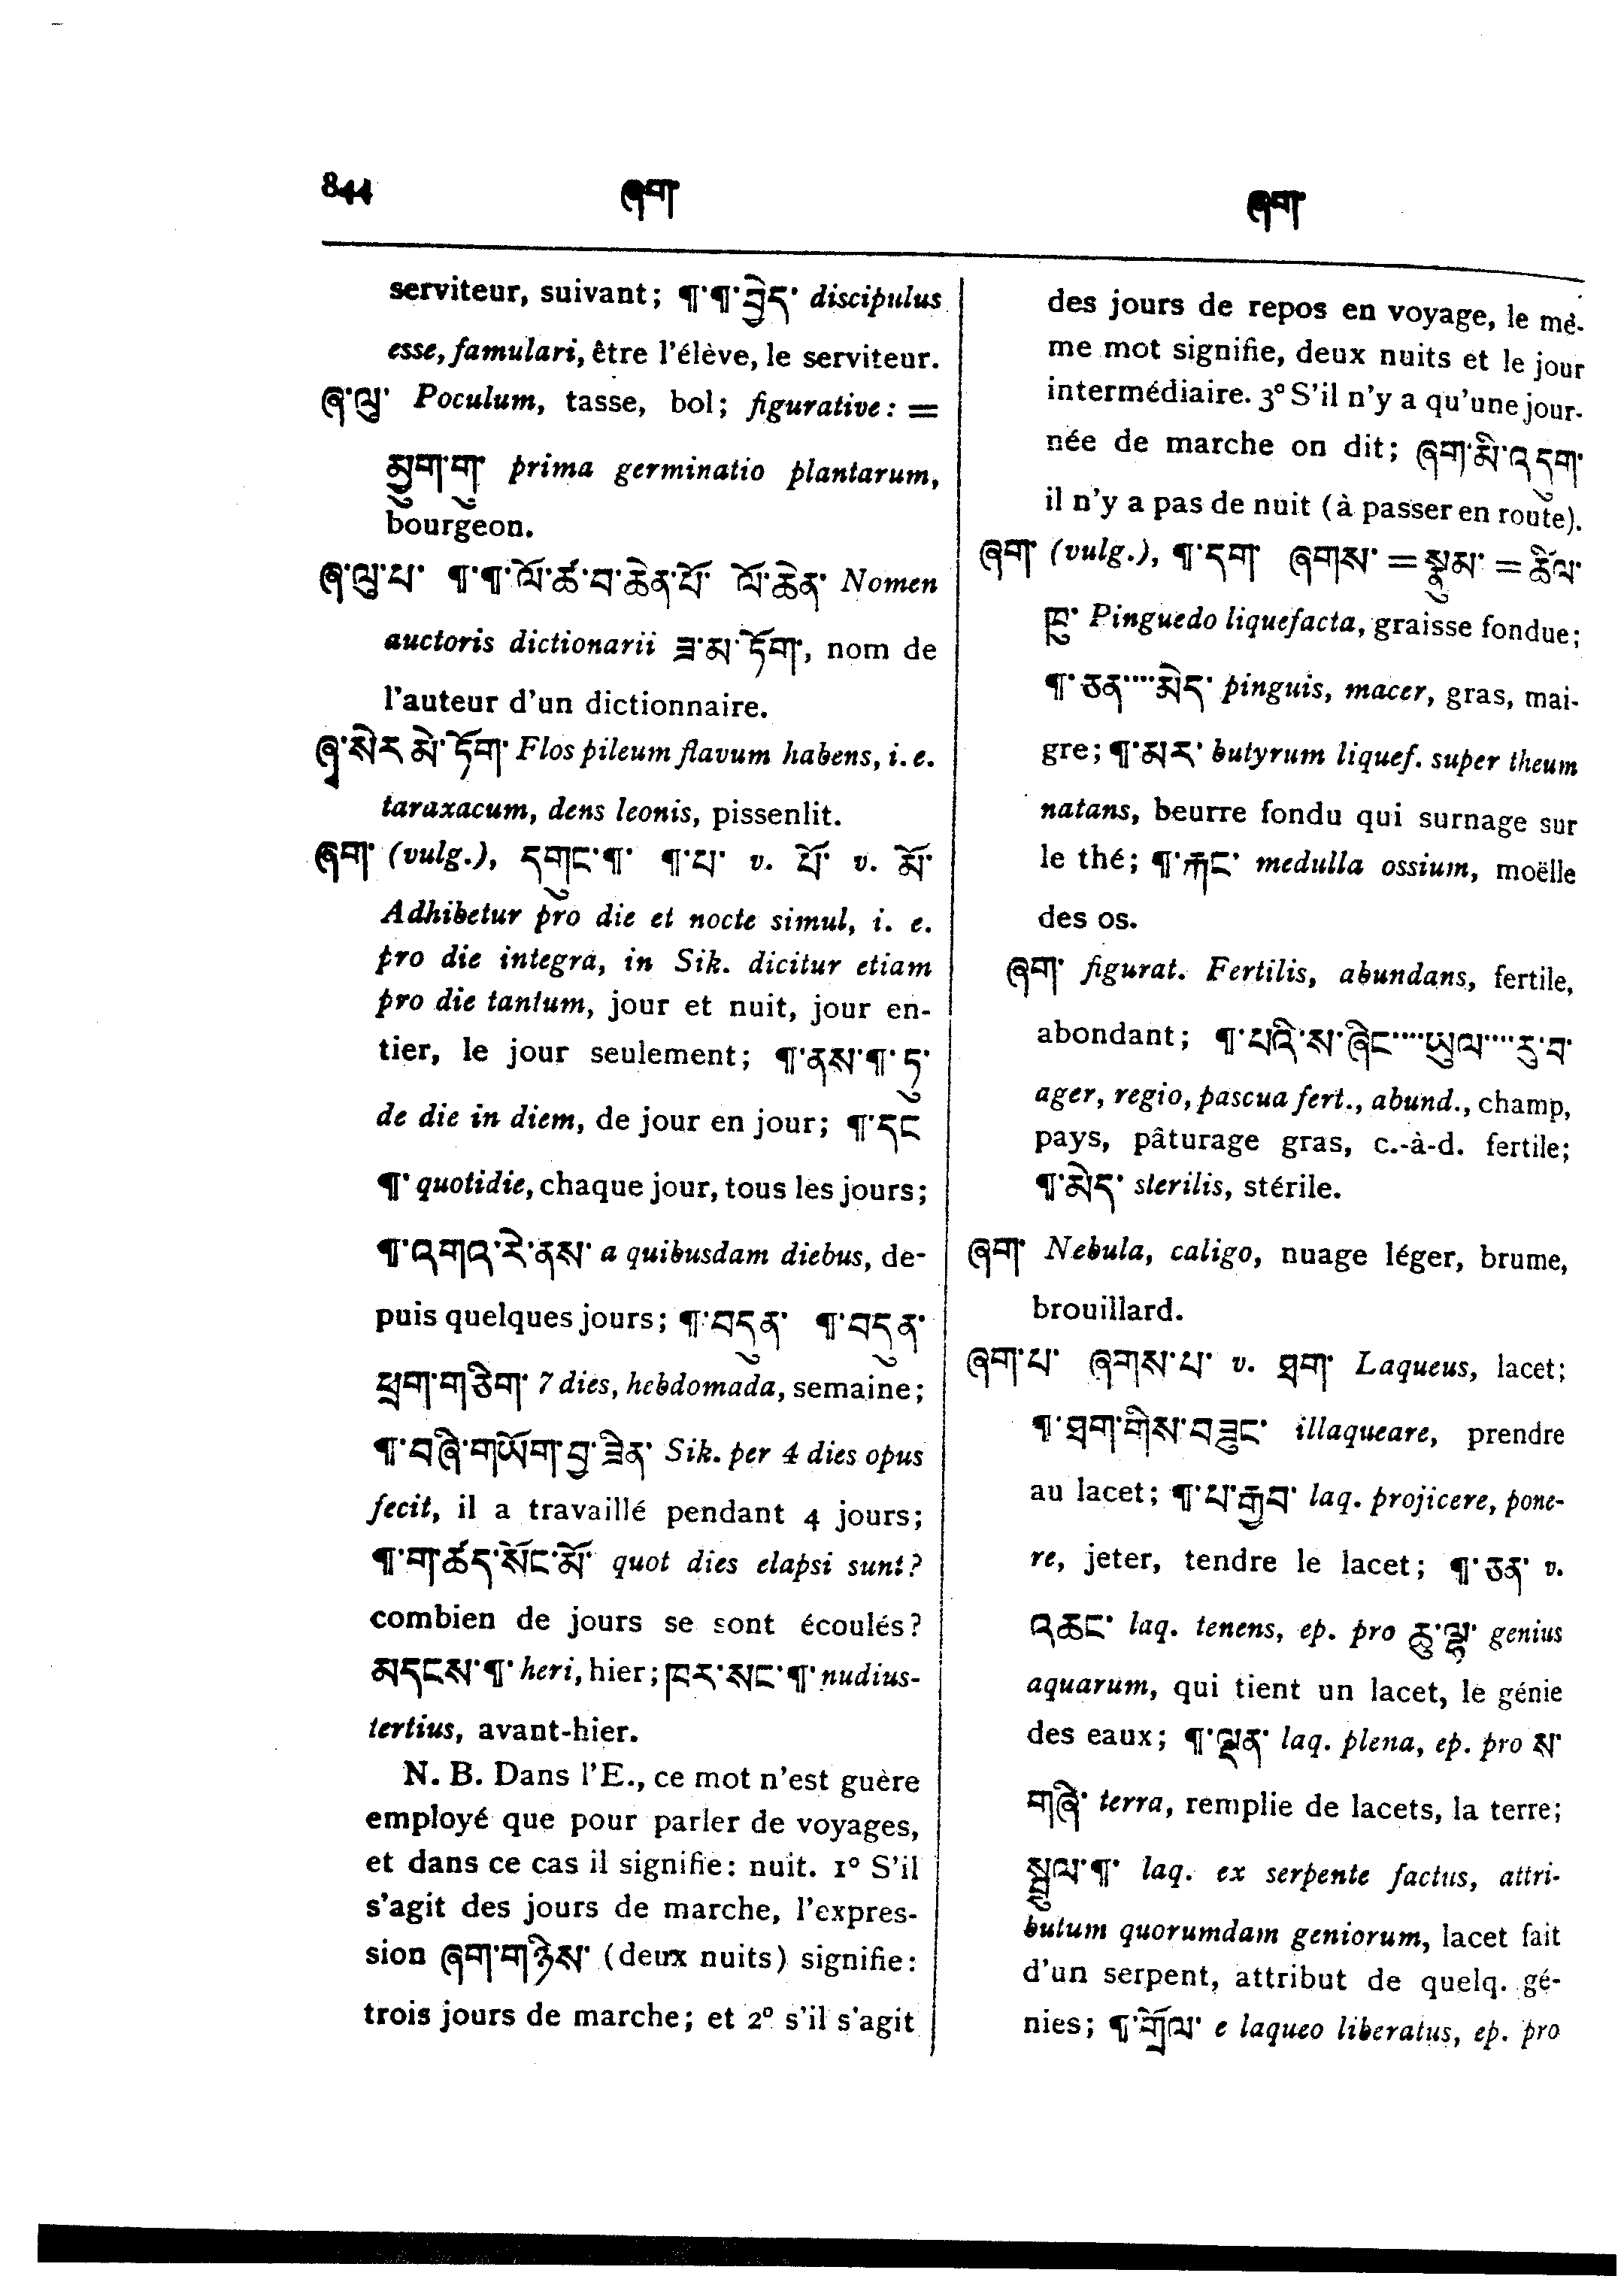 844 ཞག ཞག
serviteur, suivant; ¶་¶་བྱེད་ discipulus
esse, famulari, être l'élève, le serviteur.
ཞ་ལུ་ Poculum, tasse, bol; figurative: =
མྱུག་གུ་ prima germinatio plantarum,
bourgeon.
ཞ་ལུ་པ་ ¶་¶་ལོ་ཙཱ་བ་ཆེན་པོ་ ལོ་ཆེན་ Nomen
auctoris dictionarii ཟ་མ་ཏོག་, nom de
l'auteur d'un dictionnaire.
ཞྭ་སེར་མེ་ཏོག་ Flos pileum flavum habens, i. e.
taraxacum, dens leonis, pissenlit.
ཞག་ (vulg.), དགུང་¶་ ¶་པ་ v. པོ་ v. མོ་
Adhibetur pro die et nocte simul, i. e.
pro die integra, in Sik. dicitur etiam
pro die tantum, jour et nuit, jour en-
tier, le jour seulement; ¶་ནས་¶་ཏུ་
de die in diem, de jour en jour; ¶་དང
¶་ quotidie, chaque jour, tous les jours;
¶་འགའ་རེ་ནས་ a quibusdam diebus, de-
puis quelques jours; ¶་བདུན་ ¶་བདུན་
ཕྲག་གཅིག་ 7 dies, hebdomada, semaine;
¶་བཞི་གཡོག་བྱ་ཟིན་ Sik. per 4 dies opus
fecit, il a travaillé pendant 4 jours;
¶་ག་ཚད་སོང་མོ་ quot dies elapsi sunt?
combien de jours se sont écoulés?
མདངས་¶་ heri, hier; ཁར་སང་¶་ nudius-
tertius, avant-hier.
N. B. Dans l'E., ce mot n'est guère
employé que pour parler de voyages,
et dans ce cas il signifie: nuit. 1º S'il
s'agit des jours de marche, l'expres-
sion ཞག་གཉིས་ (deux nuits) signifie:
trois jours de marche; et 2º s'il s'agit
des jours de repos en voyage, le mê-
me mot signifie, deux nuits et le jour
intermédiaire. 3º S'il n'y a qu'une jour-
née de marche on dit; ཞག་མི་འདུག་
il n'y a pas de nuit (à passer en route).
ཞག་ (vulg.), ¶་དག ཞགས་ = སྣུམ་ = ཚིལ་
ཁུ་ Pinguedo liquefacta, graisse fondue;
¶་ཅན་....མེད་ pinguis, macer, gras, mai-
gre; ¶་མར་ butyrum liquef. super theum
natans, beurre fondu qui surnage sur
le thé; ¶་རྐང་ medulla ossium, moëlle
des os.
ཞག་ figurat. Fertilis, abundans, fertile,
abondant; ¶་པའི་ས་ཞིང་....ཡུལ་....རུ་བ་
ager, regio, pascua fert., abund., champ,
pays, pâturage gras, c.-à-d. fertile;
¶་མེད་ sterilis, stérile.
ཞག་ Nebula, caligo, nuage léger, brume,
brouillard.
ཞག་པ་ ཞགས་པ་ v. ཐག་ Laqueus, lacet;
¶་ཐག་གིས་བཟུང་ illaqueare, prendre
au lacet; ¶་པ་རྒྱབ་ laq. projicere, pone-
re, jeter, tendre le lacet; ¶་ཅན་ v.
འཆང་ laq. tenens, ep. pro ཆུ་ལྷ་ genius
aquarum, qui tient un lacet, le génie
des eaux; ¶་ལྡན་ laq. plena, ep. pro ས་
གཞི་ terra, remplie de lacets, la terre;
སྦྲུལ་¶་ laq. ex serpente factus, attri-
butum quorumdam geniorum, lacet fait
d'un serpent, attribut de quelq. gé-
nies; ¶་གྲོལ་ e laqueo liberatus, ep. pro